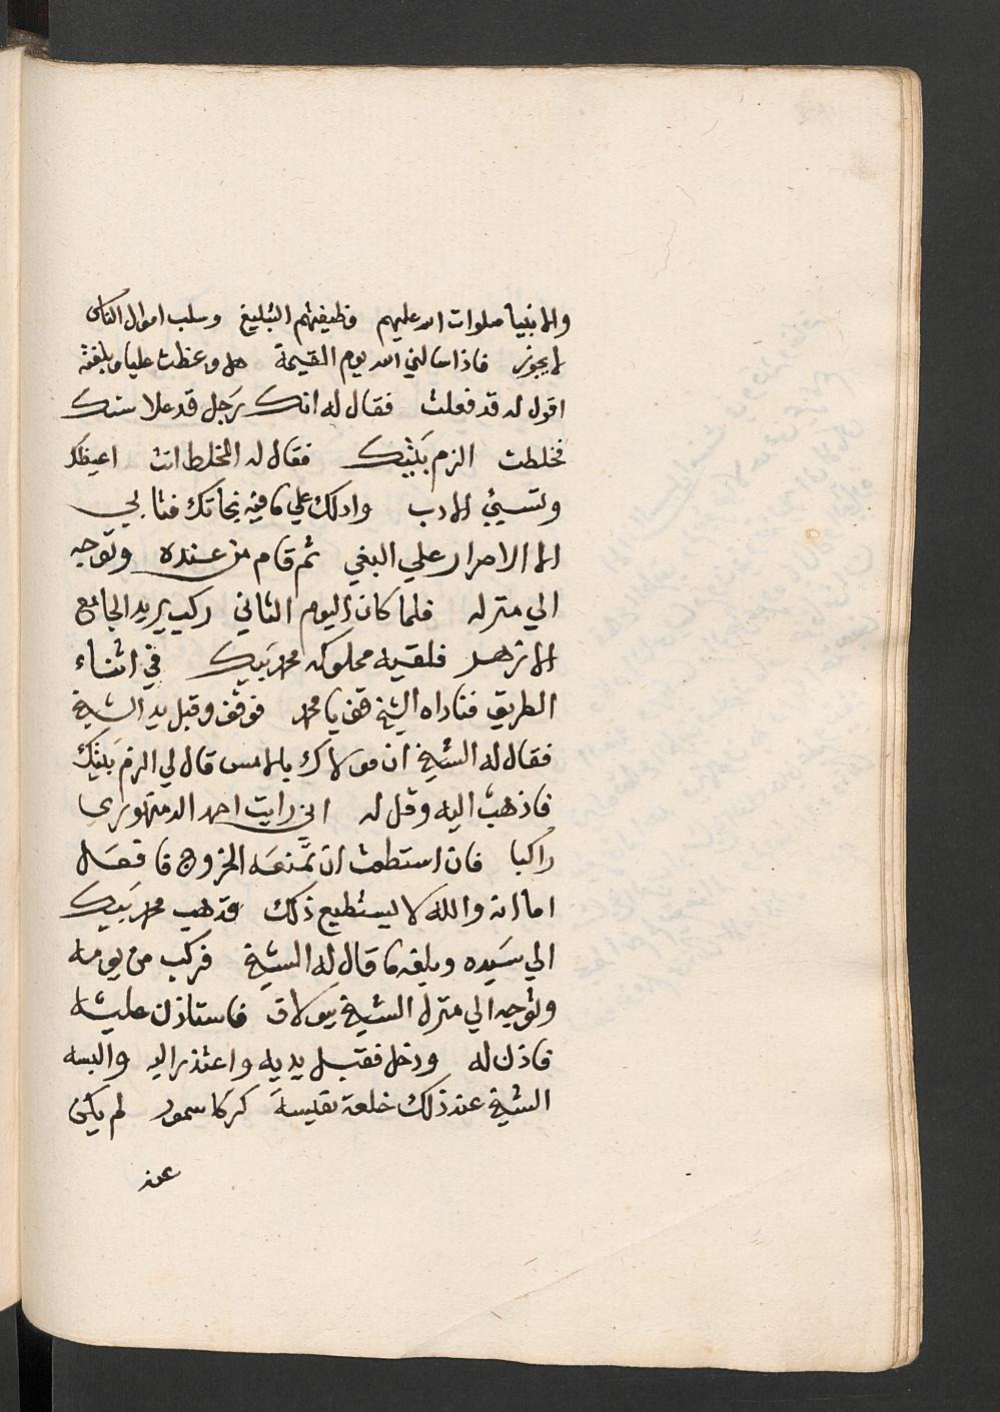 والانبيا صلوات الله عليهم وظيفتهم التبليغ وسلب اموال الناس
لا يجوز فاذا سالني الله يوم القيمة هل وعظت عليا وبلغته
اقول له قد فعلت فقال له انك رَجل قد علا سنك
فخلطت الزم بَيْتك فقال له المخلط انت اعظك
وتسيئ الادب وادلك علي ما فيه نجاتك فتابي
الا الاصرار علي البغي ثم قام من عنده وتوجه
الي منزله فلما كان اليوم الثاني ركب يريد الجامع
الازهر فلقيه مملوكه محمد بَيك في اثناء
الطريق فناداه الشيخ قف يا محمد فوقف وقبل يد الشيخ
فقال له الشيخ ان مولاك بالامس قال لي الزم بَيتك
فاذهب اليه وقل له اني رايت احمد الدمنهوري
راكبا فان استطعت ان تَمنعَه الخروج فافعَل
اما انه والله لا يستطيع ذلك فذهب محمد بَيك
الي سَيده وبلغه ما قال له الشيخ فركب من يومه
وتوجه الي منزل الشيخ ببولاق فاستاذن عليه
فاذن له ودخل فقبل يديه واعتذر اليه والبسه
الشيخ عند ذلك خلعة نفيسة كركا سمور لم يكن
عند